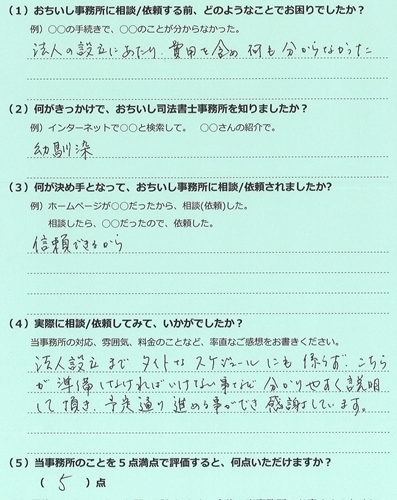 (1)おちいし事務所に相談/依頼する前、どのようなことでお困りでしたか？
例）○○の手続きで、○○のことが分からなかった。
法人の設立にあたり、費用を含め 何も 分からなかった
(2)何がきっかけで、おちいし司法書士事務所を知りましたか？
例）インターネットで○○と検索して。 ○○さんの紹介で。
幼馴染
(3)何が決め手となって、おちいし事務所に相談/依頼されましたか？
例）ホームページが○○だったから、相談(依頼)した。
相談したら、○○だったので、依頼した。
信頼できるから
(4)実際に相談/依頼してみて、いかがでしたか？
当事務所の対応、雰囲気、料金のことなど、率直なご感想をお書きください。
法人設立まで タイトな スケジュールにも 係らず、こちら
が 準備しなければいけない事など 分かりやすく 説明
して 頂き、予定通り 進める事ができ 感謝しています。
(5)当事務所のことを5点満点で評価すると、何点いただけますか？
( 5 ) 点